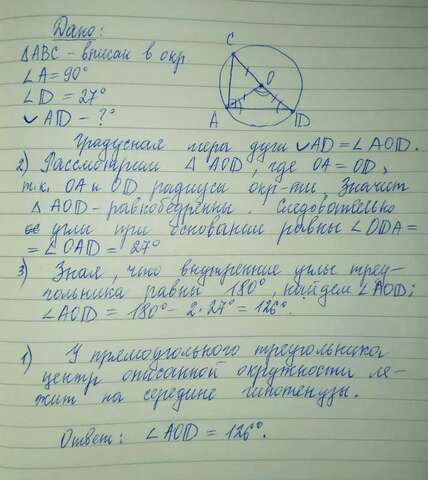 Дано:
△ABC - вписан в окр.
∠A = 90°
∠D = 27°
◡AD - ?
C
O
A
D
Градусная мера дуги ◡AD = ∠AOD.
2) Рассмотрим △ AOD, где OA = OD,
т.к. OA и OD радиусы окр-ти, Значит
△ AOD - равнобедренны. Следовательно
углы при основании равны ∠ODA =
= ∠OAD = 27°
3) Зная, что внутренние углы треу-
гольника равны 180°, найдем ∠AOD:
∠AOD = 180° - 2·27° = 126°.
1) У прямоугольного треугольника
центр описанной окружности ле-
жит на середине гипотенузы.
Ответ: ∠AOD = 126°.